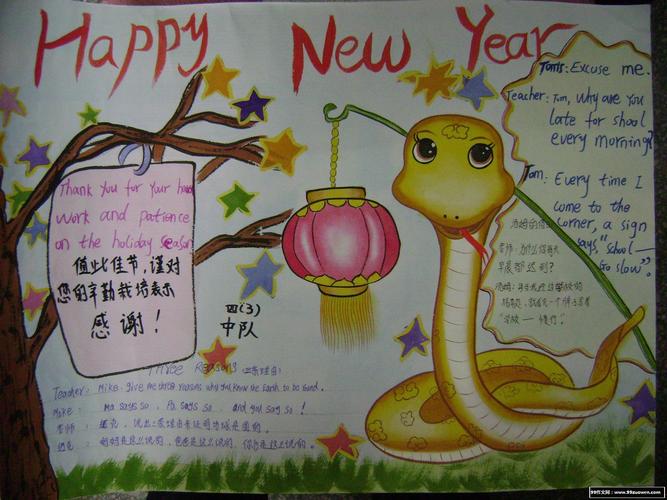 Happy New Year
Thank you for your hard
work and patience
on the holiday season
值此佳节,谨对
您的辛勤栽培表示
感谢!
四(3)
中队
Tom: Excuse me.
Teacher: Tom, why are you
late for shool
every morning?
Tom: Every time I
come to the
corner, a sign
says, "school —
Go slow".
老师:为什么你每天
早晨都迟到?
"学校——慢行"
Three Reasons
Teacher: Mike. give me three reasons why you know the Earth to be round.
Ma says so, Pa says so, and you say so!
妈妈是这么说的,爸爸是这么说的,你也是这么说的。
99作文网:www.99zuowen.com